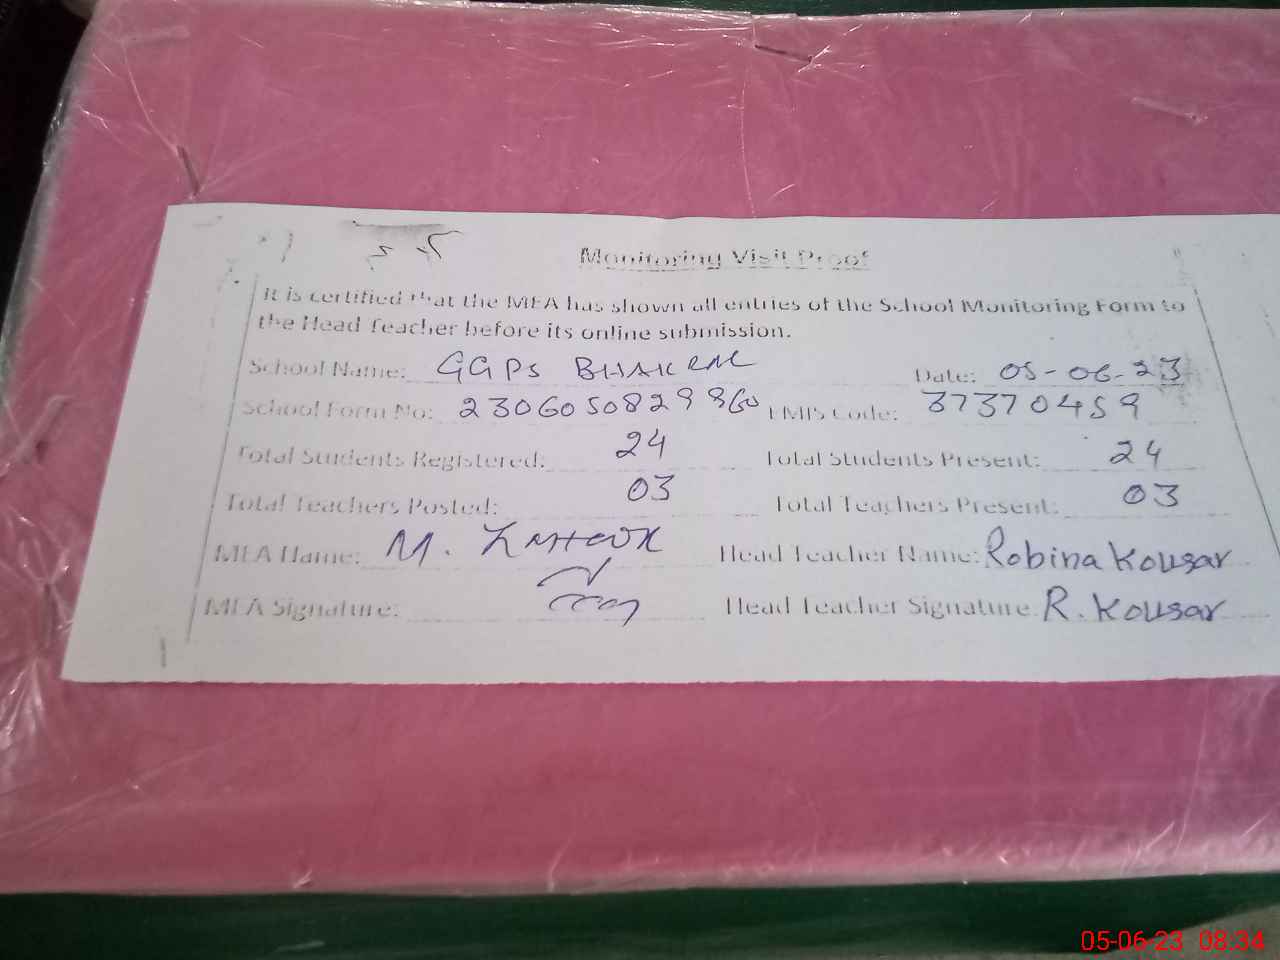 Monitoring Visit Proof
It is certified that the MEA has shown all entries of the School Monitoring Form to
the Head Teacher before its online submission.
School Name: GGPS BHAKRAL Date: 05-06-23
School Form No: EMIS Code: 37370459
Total Students Registered: 24 Total Students Present: 24
Total Teachers Posted: 03 Total Teachers Present: 03
MEA Name: M. Head Teacher Name: Robina Kousar
MEA Signature: Head Teacher Signature: R. Kousar
05-06-23 08:34